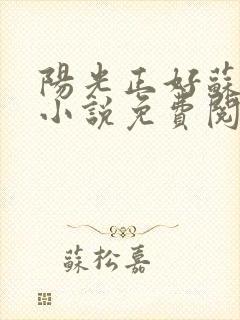 陽光正好蘇
小說免費閱
蘇松嘉